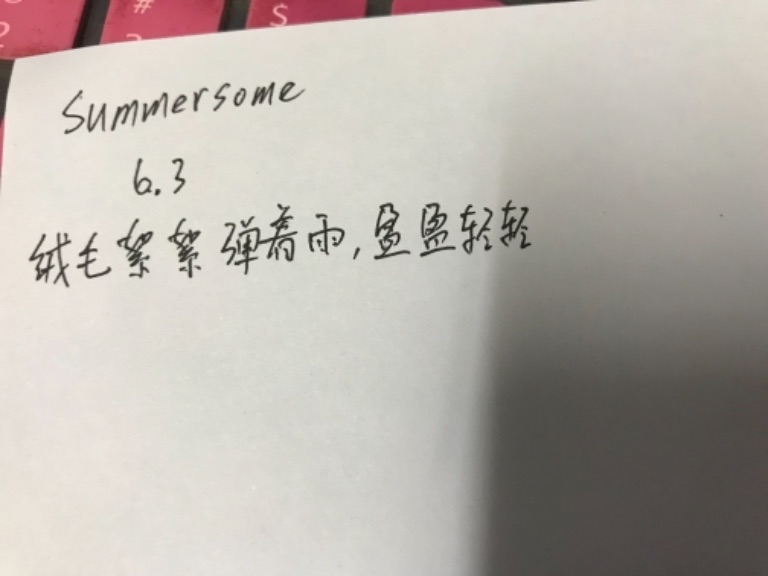 #
S
summersome
6.3
绒毛絮絮弹着雨,盈盈轻轻